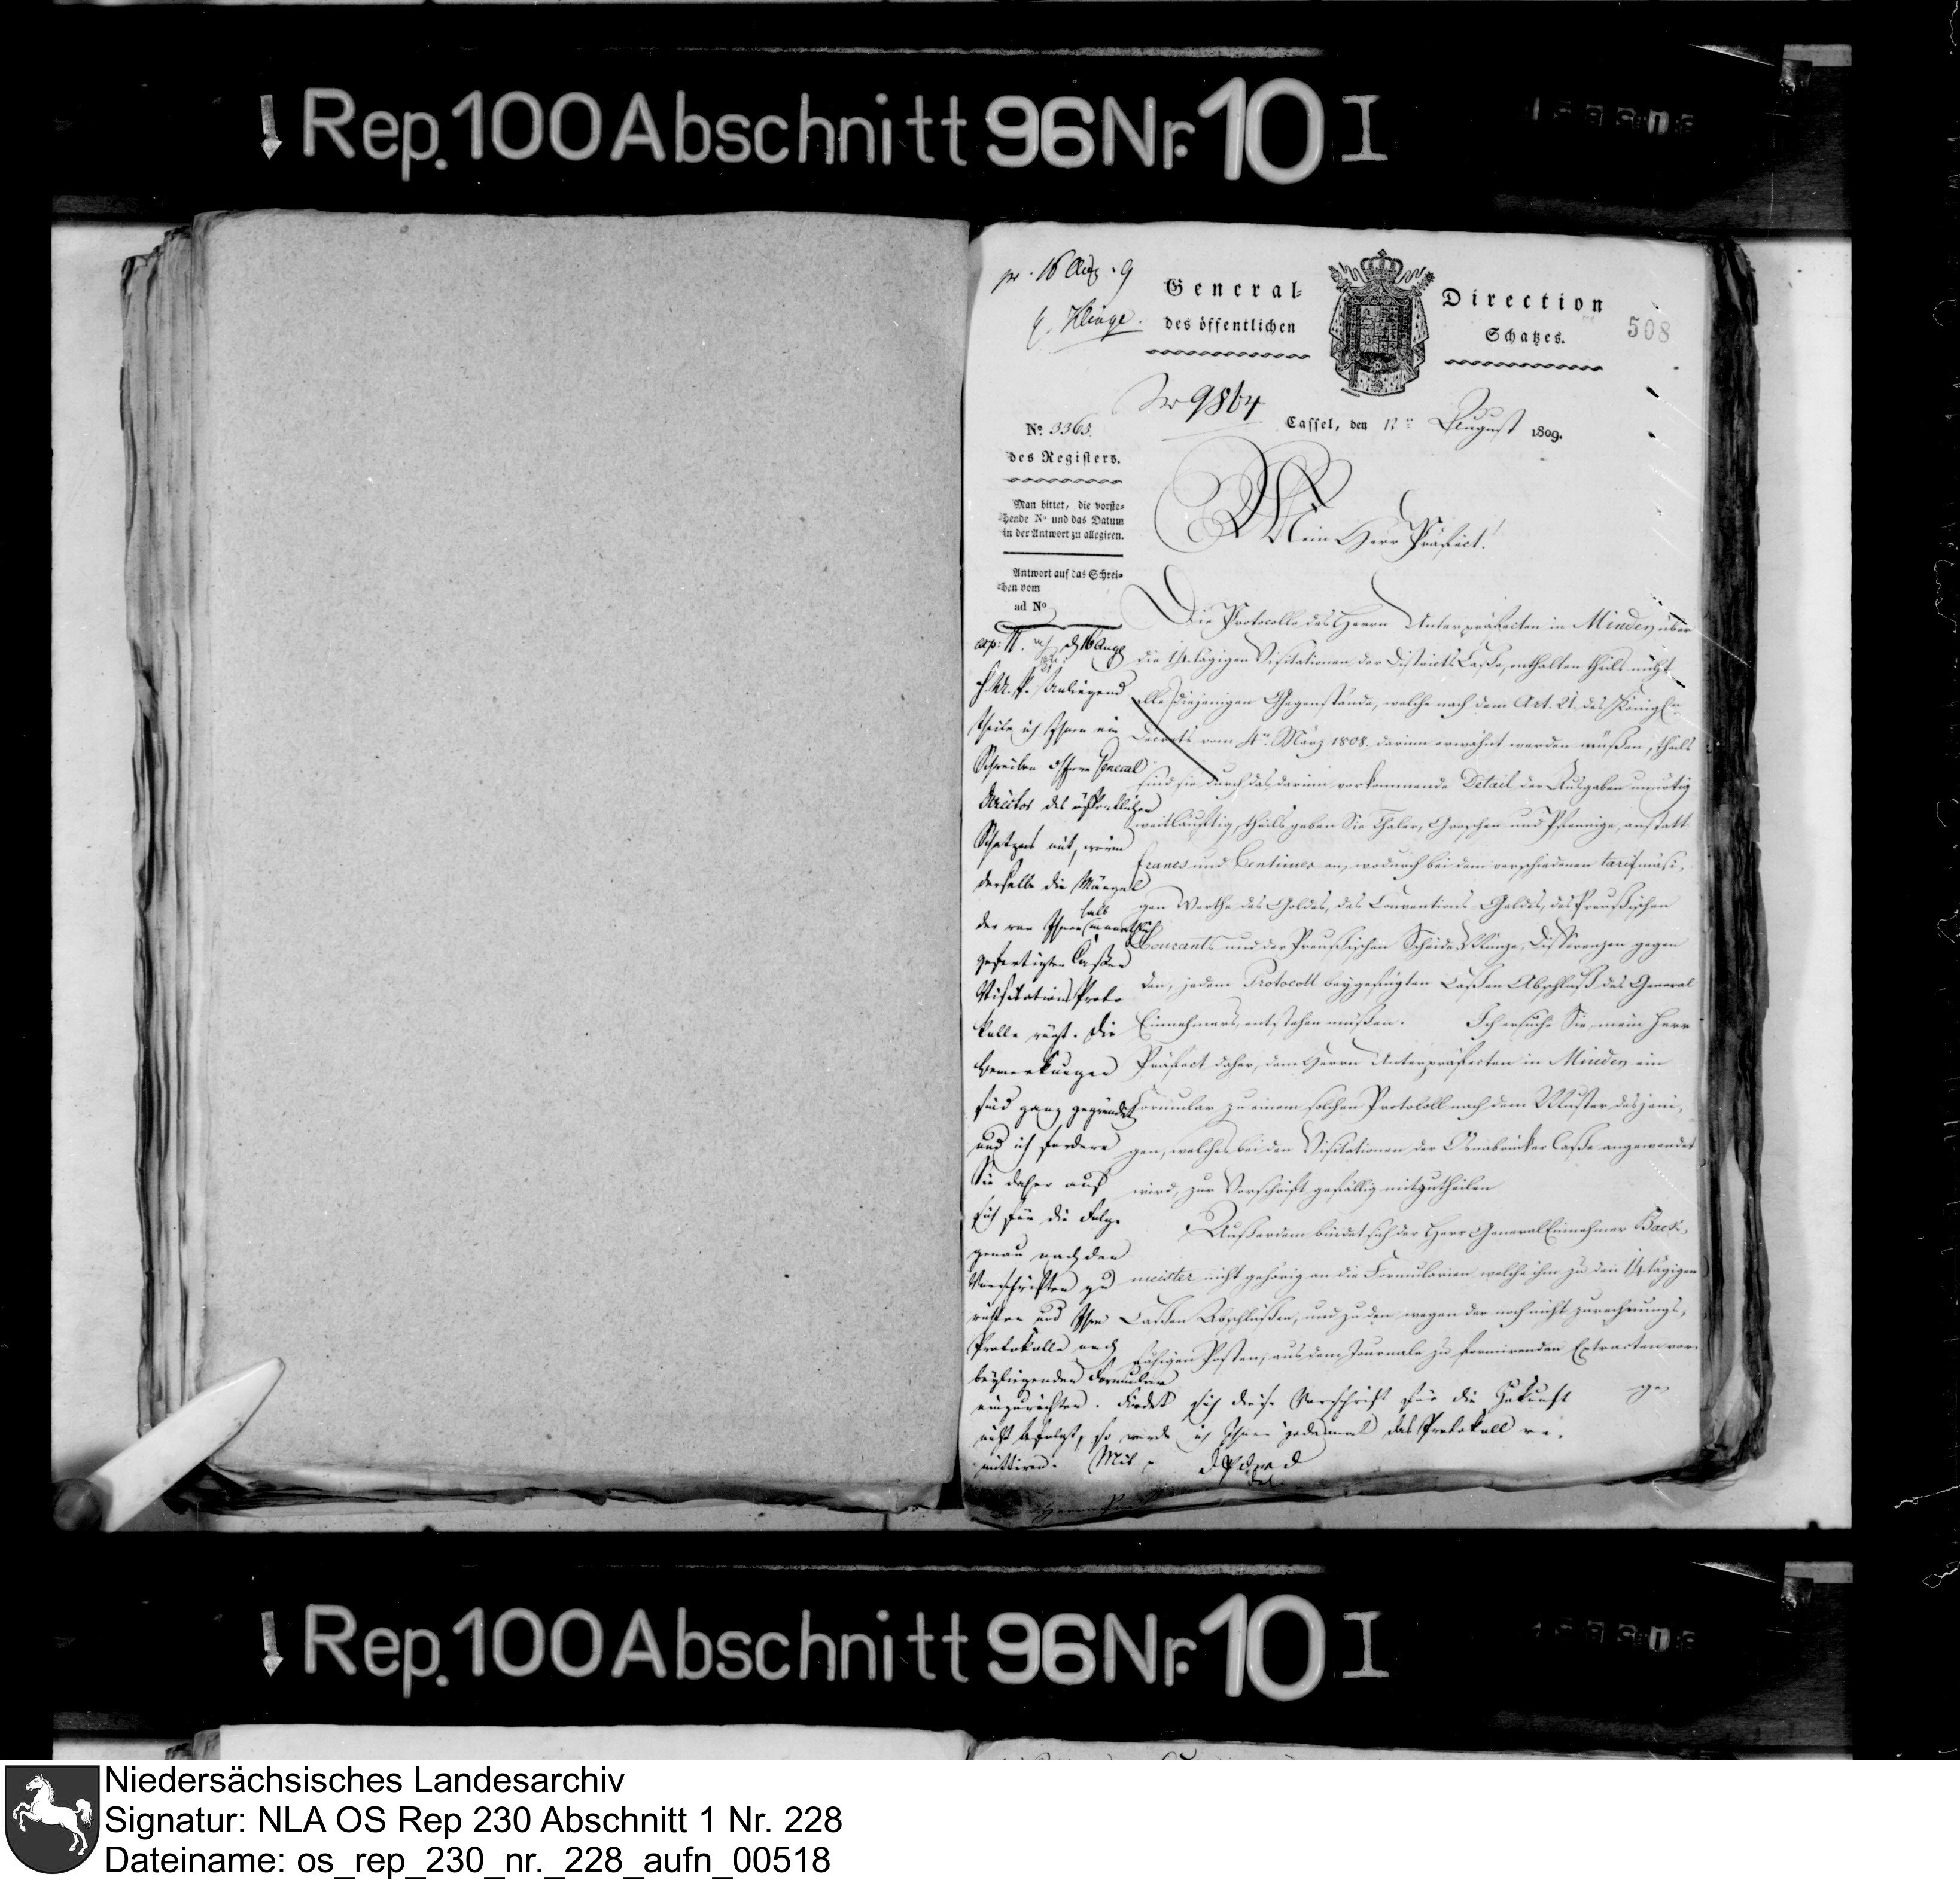 Rep. 100 Abschnitt 96 Nr. 10 I
pr. 16 Aug. 9
Klinge.
General-Direction
des öffentlichen Schatzes.
508
9864
No. 3363.
des Registers.
Cassel, den 12n August 1809.
Man bittet, die vorste-
hende No und das Datum
in der Antwort zu allegiren.
Antwort auf das Schrei-
ben vom
ad No
Mein Herr Präfect!
Die Protocolle des Herrn Unterpräfecten in Minden über
die 14 tägigen Visitationen der Districts Casse, enthalten theils nicht
alle diejenigen Gegenstände, welche nach dem Art. 21. des Königln
Decrets vom 4n März 1808. darinn erwähnt werden müßen, theils
sind sie durch das darinn vorkommende Detail der Ausgaben unnötig
weitläuftig, theils geben Sie Thaler, Groschen und Pfennige, anstatt
francs und Centimes an, wodurch bei dem verschiedenen tarifmäsi-
gen Werthe des Goldes, des Conventions-Geldes, des Preußischen
Courants und der Preußischen Scheide Münze, Differenzen gegen
den, jedem Protocoll beygefügten Cassen Abschluß des General
Einnehmers, entstehen müßen. Ich ersuche Sie mein Herr
Präfect daher, dem Herrn Unterpräfecten in Minden ein
Formular zu einem solchen Protocoll nach dem Muster desjeni-
gen, welches bei den Visitationen der Osnabrücker Casse angewendet
wird, zur Vorschrift gefällig mitzutheilen
Außerdem bindet sich der Herr General Einnehmer Back-
meister nicht gehörig an die Formularien welche ihm zu den 14 tägigen
Cassen Abschlüßen, und zu den wegen der noch nicht zurechnungs-
fähigen Posten, aus dem Journale zu formirenden Extracten vor-
ge-
exp: 11. d 16 Aug
Anliegend
theile ich Ihnen ein
Schreiben des Herrn General
Directors des öffentlichen
Schatzes mit, worin
derselbe die Mängel
der von Ihnen halb monatlich
gefertigten Cassen
Visitations Proto-
kolle rügt. Die
Bemerkungen
sind ganz gegründet
und ich fordere
Sie daher auf
sich für die Folge
genau nach den
Vorschriften zu
richten und Ihre
Protokolle nach
beyliegendem Formular
einzurichten. Findet sich diese Vorschrift für die Zukunft
nicht befolgt, so werde ich Ihnen jedesmal das Protokoll re-
mittiren. Mit
Rep. 100 Abschnitt 96 Nr. 10 I
Niedersächsisches Landesarchiv
Signatur: NLA OS Rep 230 Abschnitt 1 Nr. 228
Dateiname: os_rep_230_nr._228_aufn_00518